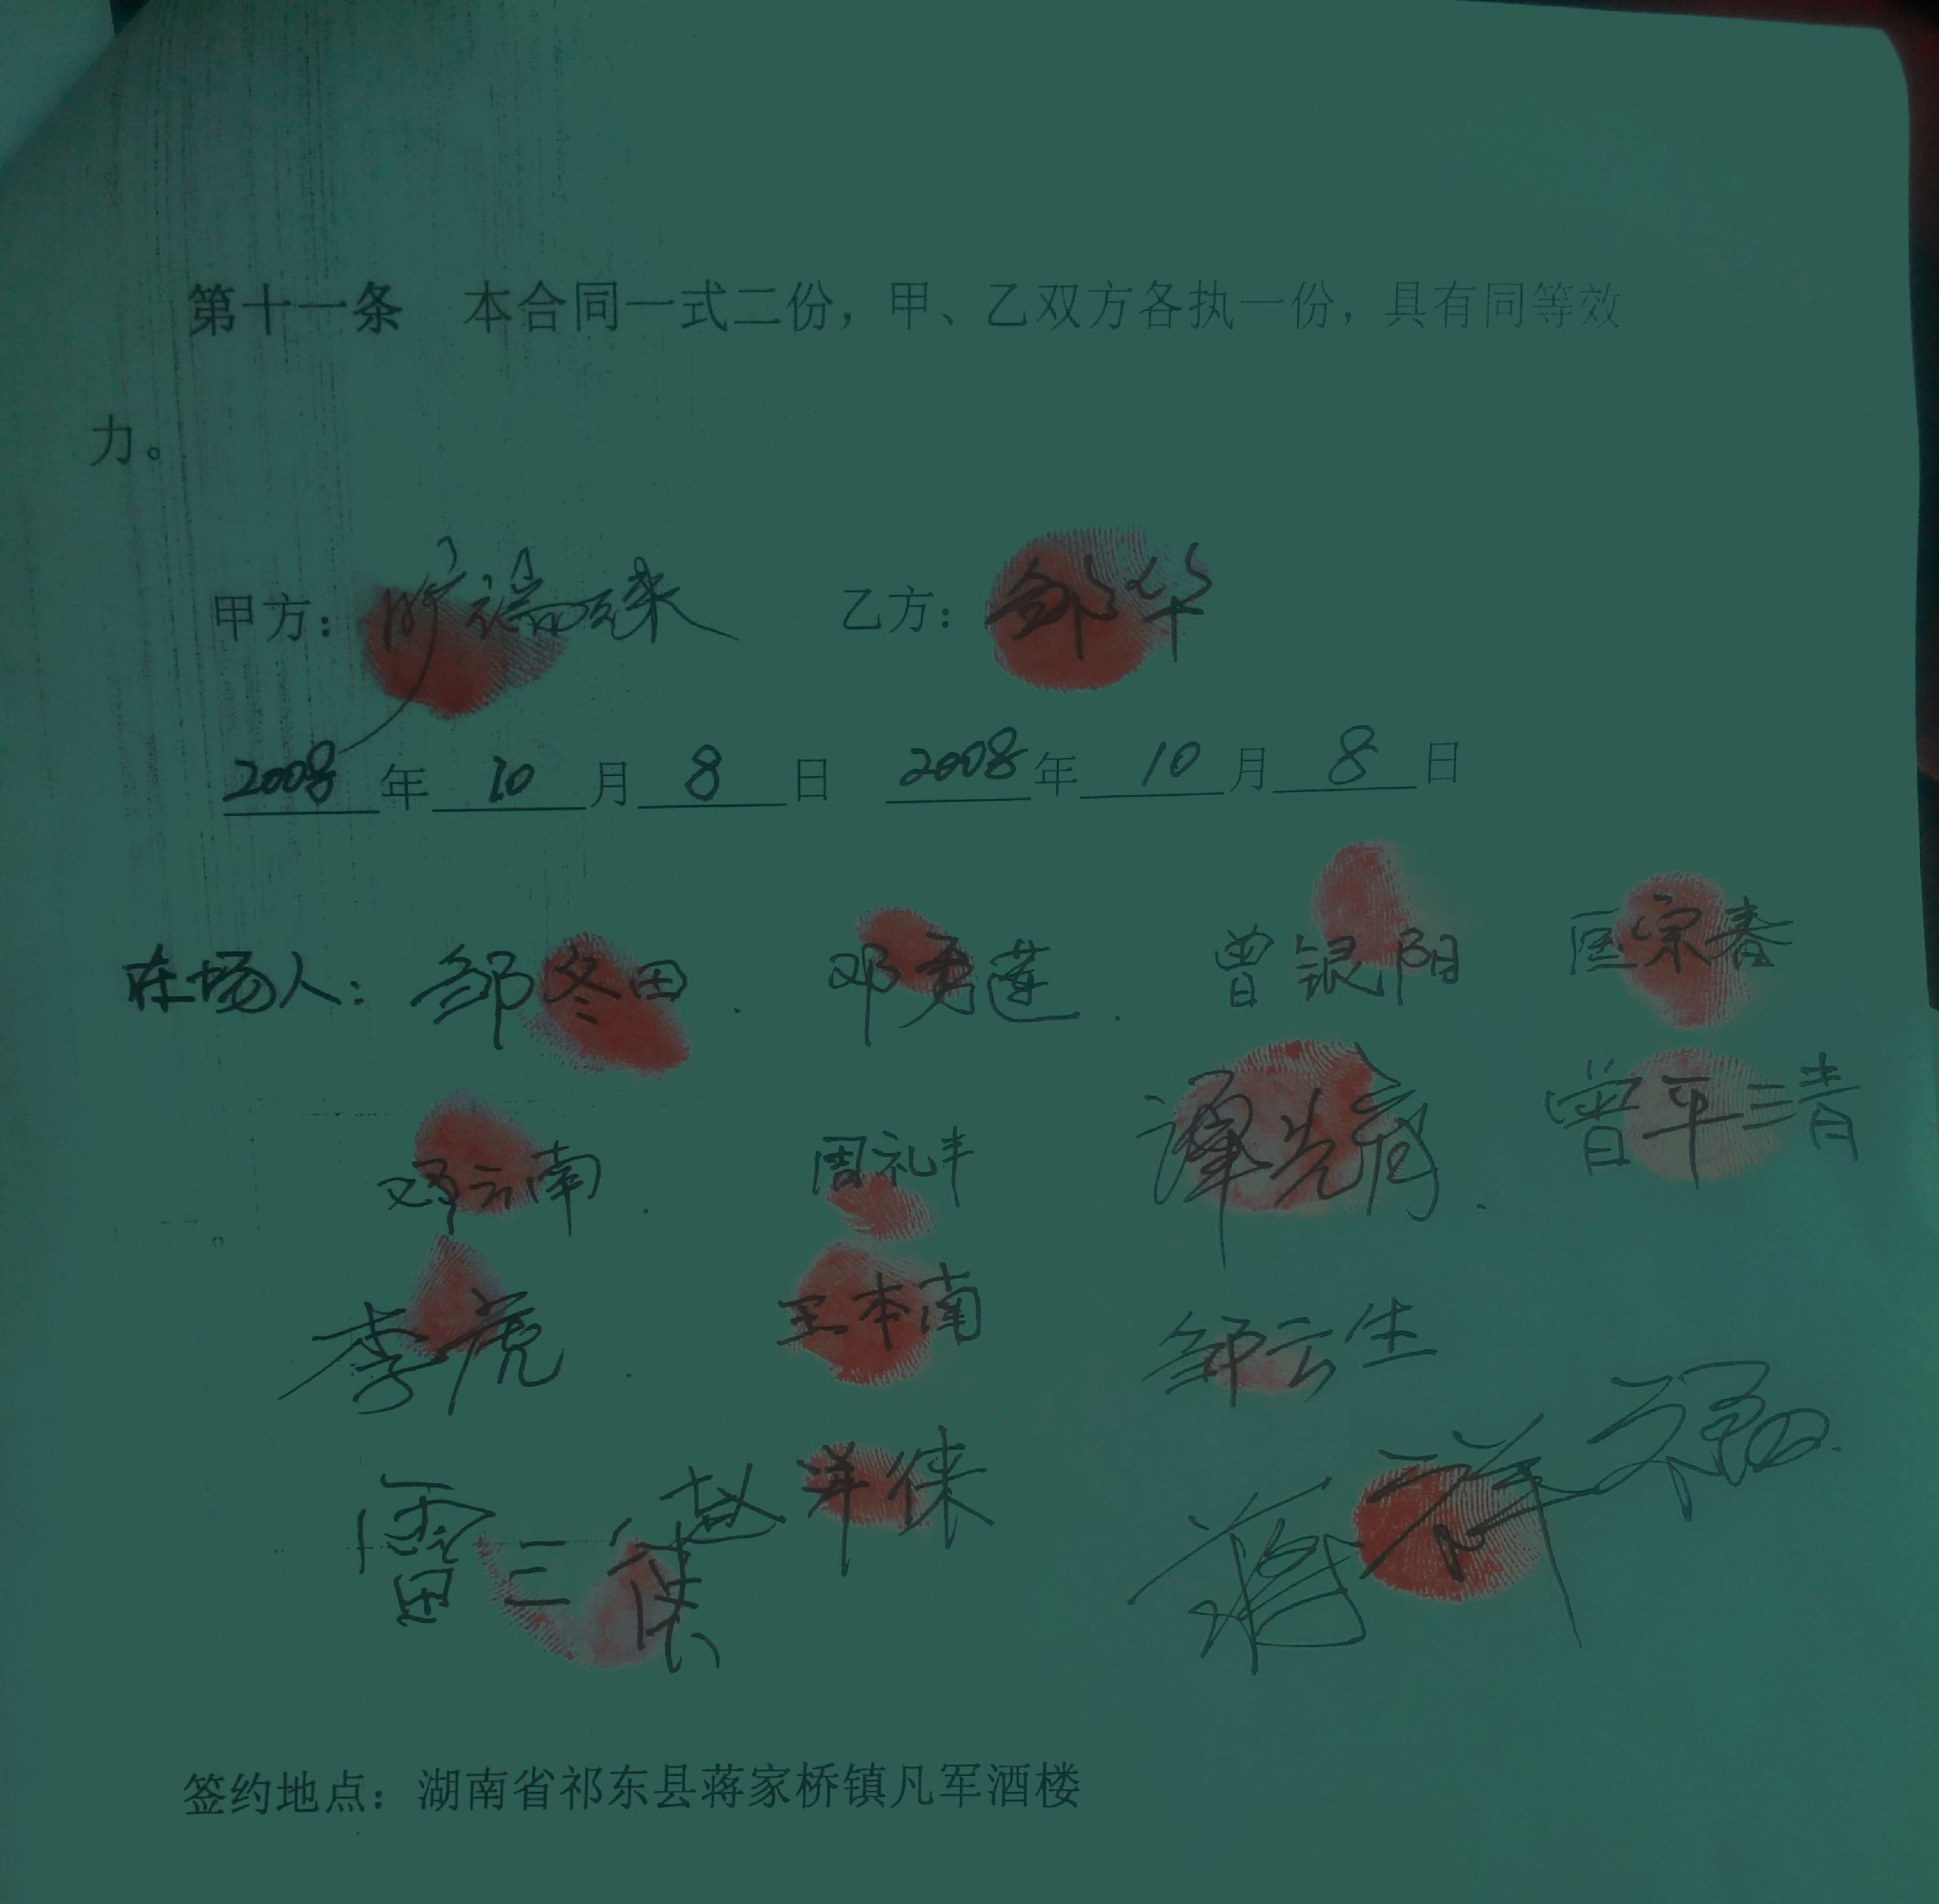 第十一条 本合同一式二份，甲、乙双方各执一份，具有同等效
力。
甲方： 乙方：邹华
2008年10月8日 2008年10月8日
在场人：邹冬田. 邓秀莲. 曾银阳 匡宗春
邓云南. 周礼丰 谭光 曾平清
李虎. 王本南 邹云生
雷三 赵洋徕 蒋祥福
签约地点：湖南省祁东县蒋家桥镇凡军酒楼